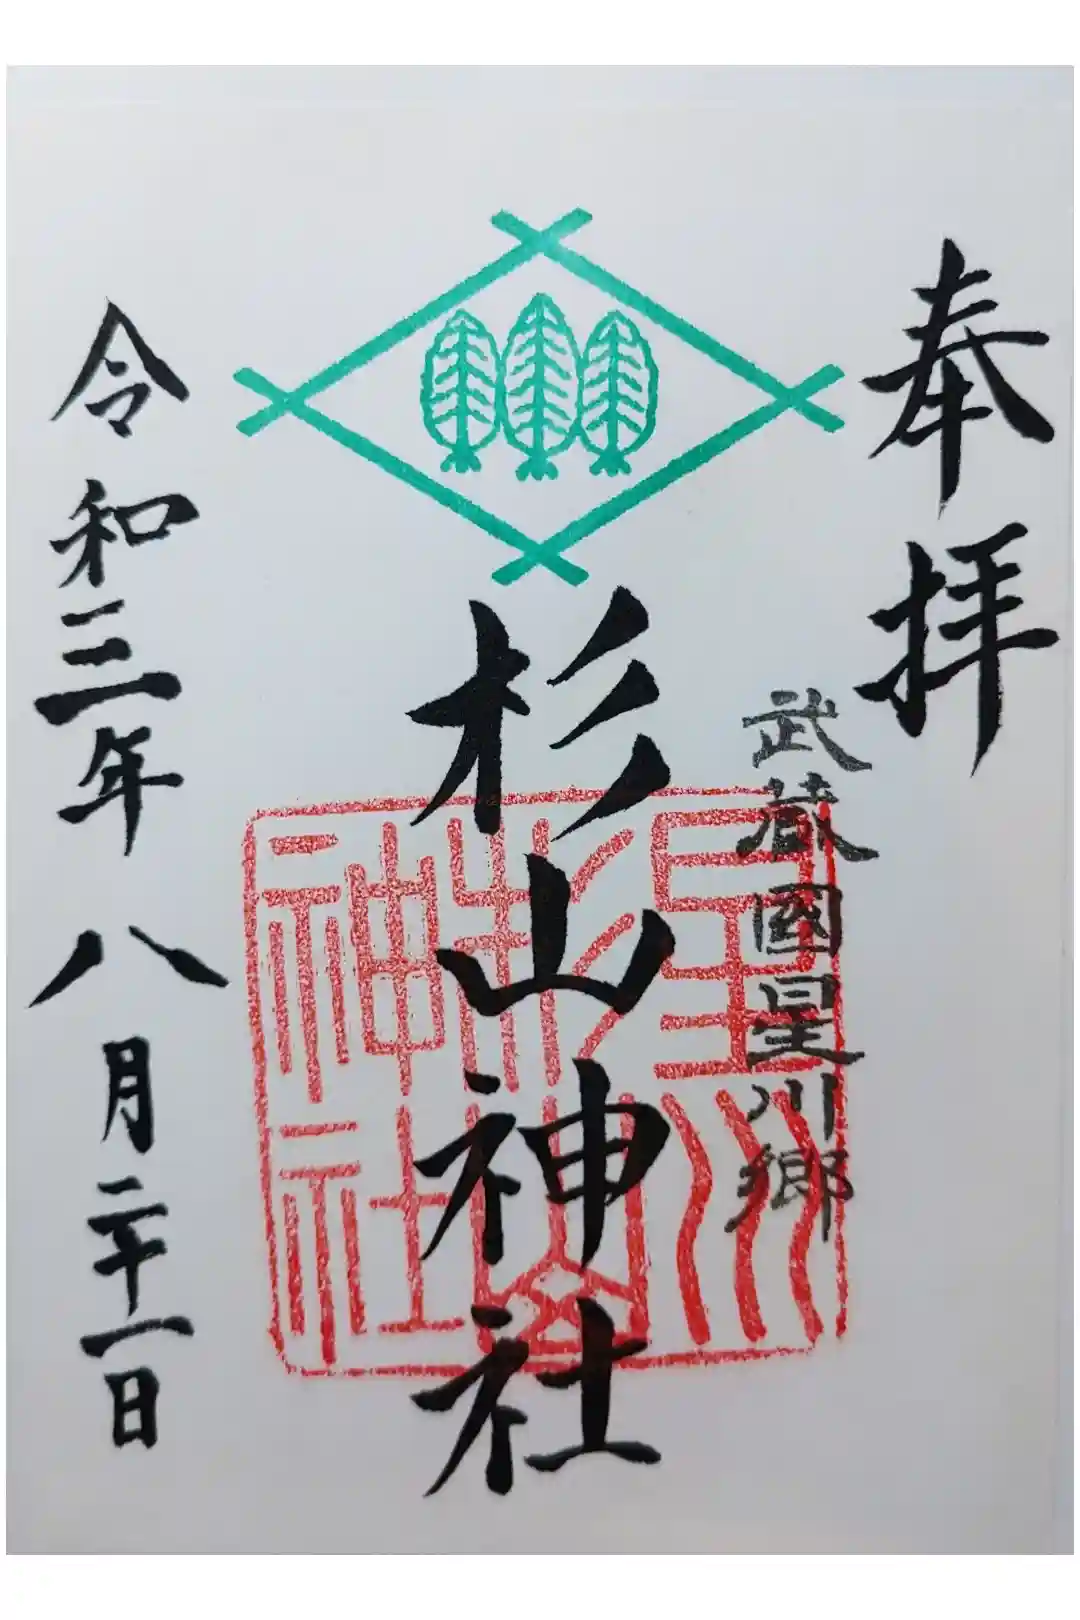 奉拝
武蔵國星川郷
杉山神社
星川
杉山
神社
令和三年八月二十一日